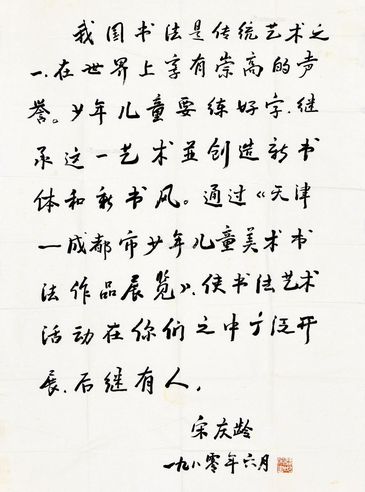 我国书法是传统艺术之
一、在世界上享有崇高的声
誉。少年儿童要练好字、继
承这一艺术並创造新书
体和新书风。通过《天津
—成都市少年儿童美术书
法作品展览》、使书法艺术
活动在你们之中广泛开
展、后继有人。
宋庆龄
一九八零年六月